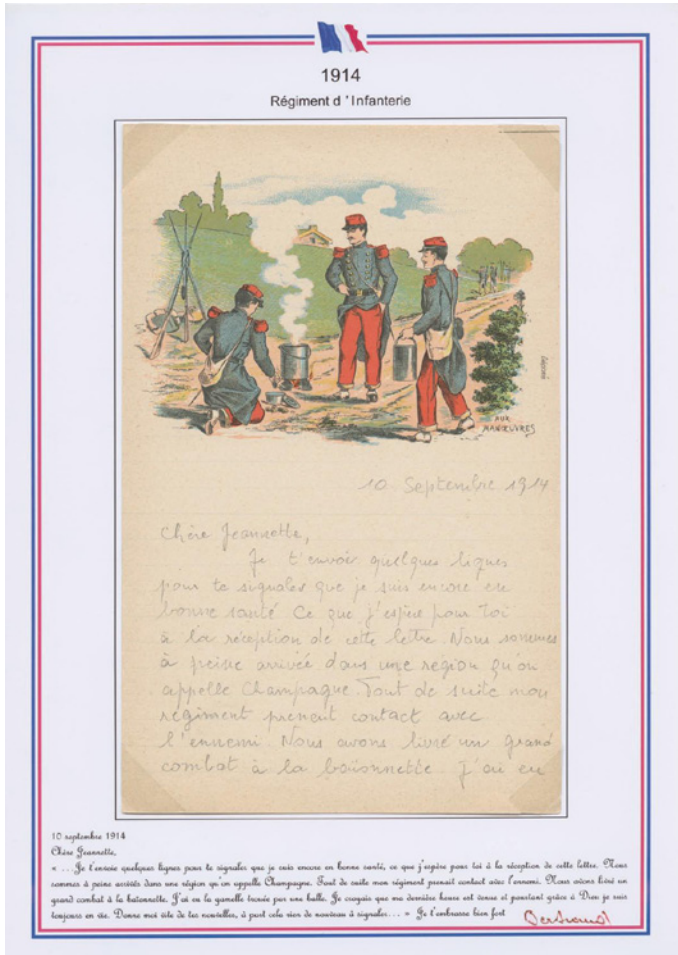 1914
Régiment d 'Infanterie
AUX
MANŒUVRES
10 Septembre 1914
Chère Jeannette,
Je t'envoie quelques lignes
pour te signaler que je suis encore en
bonne santé. Ce que j'espère pour toi
à la réception de cette lettre. Nous sommes
à peine arrivée dans une région qu'on
appelle Champagne. Tout de suite mon
régiment prenent contact avec
l'ennemi. Nous avons livré un grand
combat à la baïonnetée. J'ai eu
10 septembre 1914
Chère Jeannette,
« ...Je t'envoie quelques lignes pour te signaler que je suis encore en bonne santé, ce que j'espère pour toi à la réception de cette lettre. Nous
sommes à peine arrivés dans une région qu'on appelle Champagne. Tout de suite mon régiment prenait contact avec l'ennemi. Nous avons livré un
grand combat à la baïonnette. J'ai eu la gamelle trouée par une balle. Je croyais que ma dernière heure est venue et pourtant grâce à Dieu je suis
toujours en vie. Donne moi vite de tes nouvelles, à part cela rien de nouveau à signaler... » Je t'embrasse bien fort
Bertrand